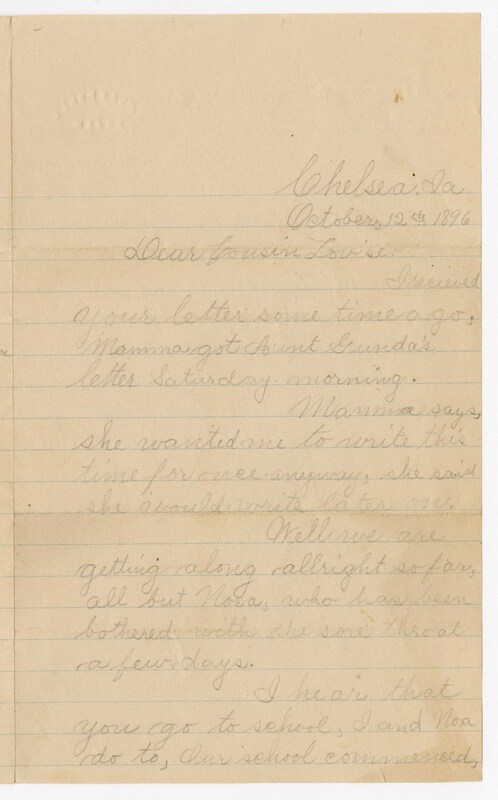 Chelsea. Ia
October, 12th 1896
Dear Cousin Lovise.
I recieved
your letter some time a go,
Mamma got Aunt Gunda's
letter Saturday morning.
Mamma says,
she wanted me to write this
time for once anyway, she said
she would write later on.
Well we are
getting along allright so far,
all but Nora, who has been
bothered with the sore throat
a few days.
I hear that
you go to school, I and Noa
do to, Our school commenced,